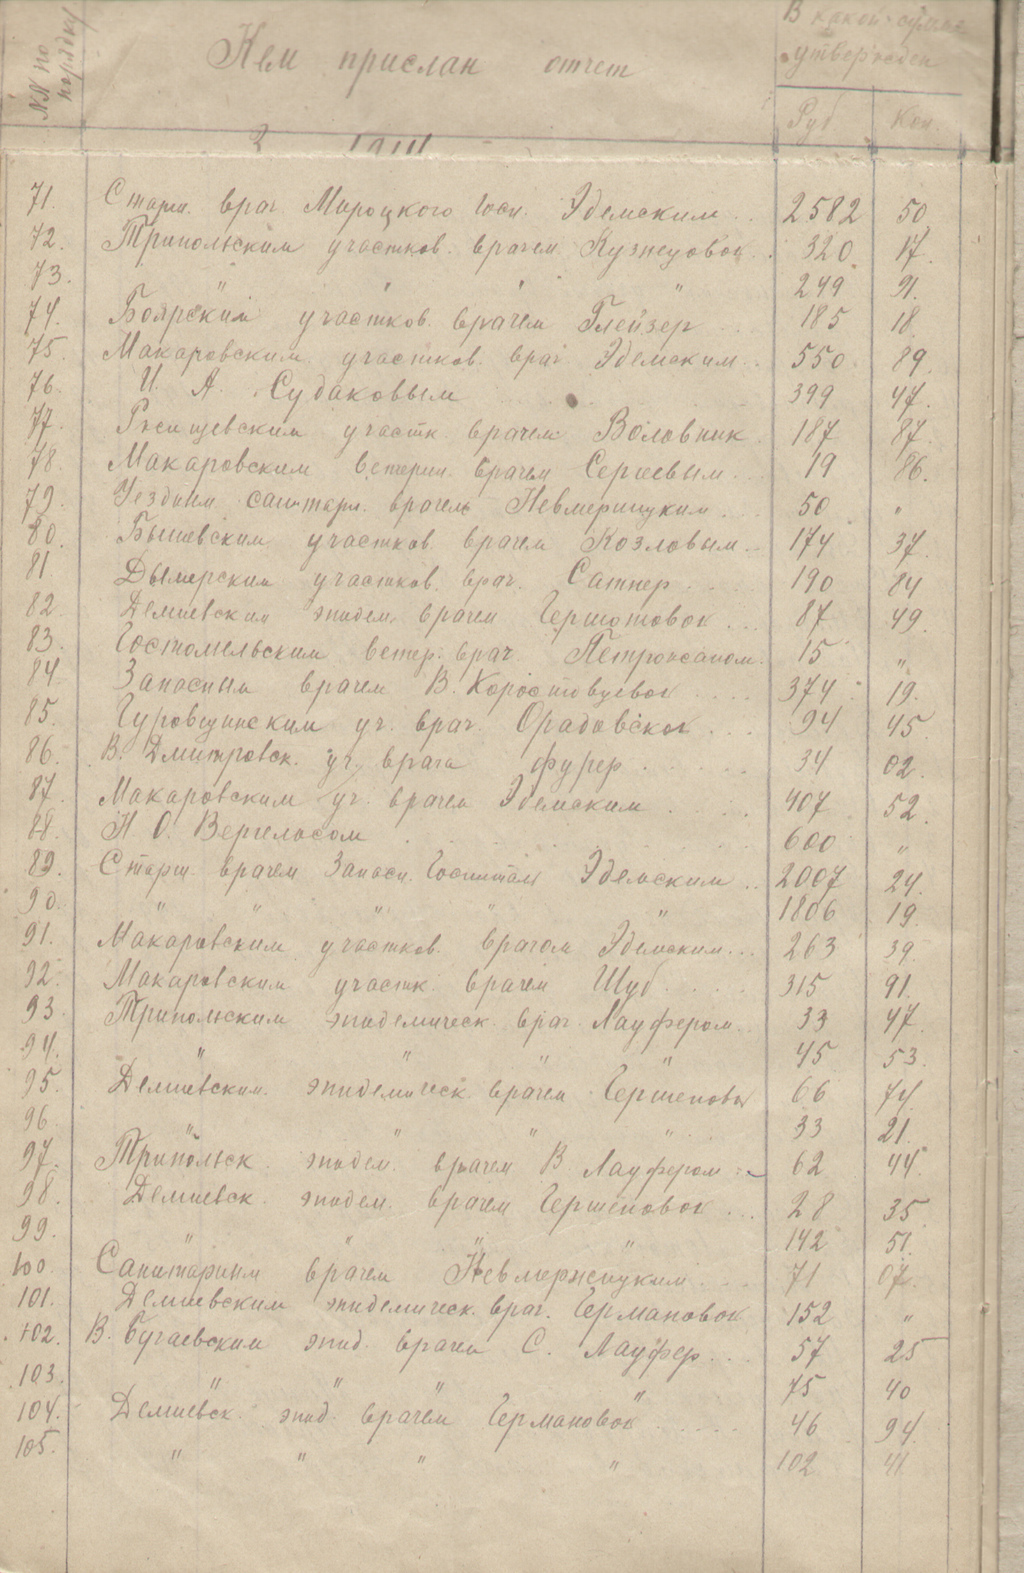 NN по порядку
Кем прислан отчет
В какой сумме утвержден
Руб Коп.
71. Старш. врач. Мироцкого Госп. Эдемским .. 2582 50
72. Трипольским участков. врачем Кузнецовой . 320 17.
73. " " " " 249 91.
74. Боярским участков. врачем Глейзер ... 185 18
75. Макаровским участков. врач. Эдемским .. 550 89.
76. И. А. Судаковым 399 47.
77. Ржищевским участк. врачем Воловник 187 87.
78. Макаровским ветерин. врачем Сергеевым ... 19 86.
79. Уездным санитарн. врачем Невмержицким ... 50 "
80. Бышевским участков. врачем Козловым .. 174 37.
81 Дымерским участков. врач. Сатнер ... 190 84
82. Демиевским эпидем. врачем ... 87 49.
83. Гостомельским ветер. врач. 15 "
84. Запасным врачем В. Коростовцевой .... 374 19.
85. Гуровщинским уч. врач. Орадовской ... 94 45.
86. В. Дмитровск. уч. врача Фурер ..... 34 02.
87. Макаровским уч. врачем Эдемским .... 407 52.
88. Н О. Вергелосом ...... 600 "
89. Старш. врачем Запасн. Госпиталя Эдемским .. 2007 24.
90. " " " " " 1806 19.
91. Макаровским участков. врачом Эдемским ... 263 39.
92. Макаровским участк. врачем Шуб .... 315 91.
93. Трипольским эпидемическ. врач. Лауфером .. 33 47.
94. " " " " 45 53.
95. Демиевским эпидемическ. врачем 66 74
96. " " " " 33 21.
97. Трипольск. эпидем. врачем В Лауфером .. 62 44
98. Демиевск. эпидем. врачем Гершеновой ... 28 35.
99. " " " " 142 51.
100. Санитарным врачем Невмержицким .... 71 07.
101. Демиевским эпидемическ. врач. Германовой 152 "
102. В. Бугаевским эпид. врачем С. Лауфер ... 57 25
103. " " " " 75 40
104. Демиевск. эпид. врачем Германовой ..... 46 94.
105. " " " " 102 41